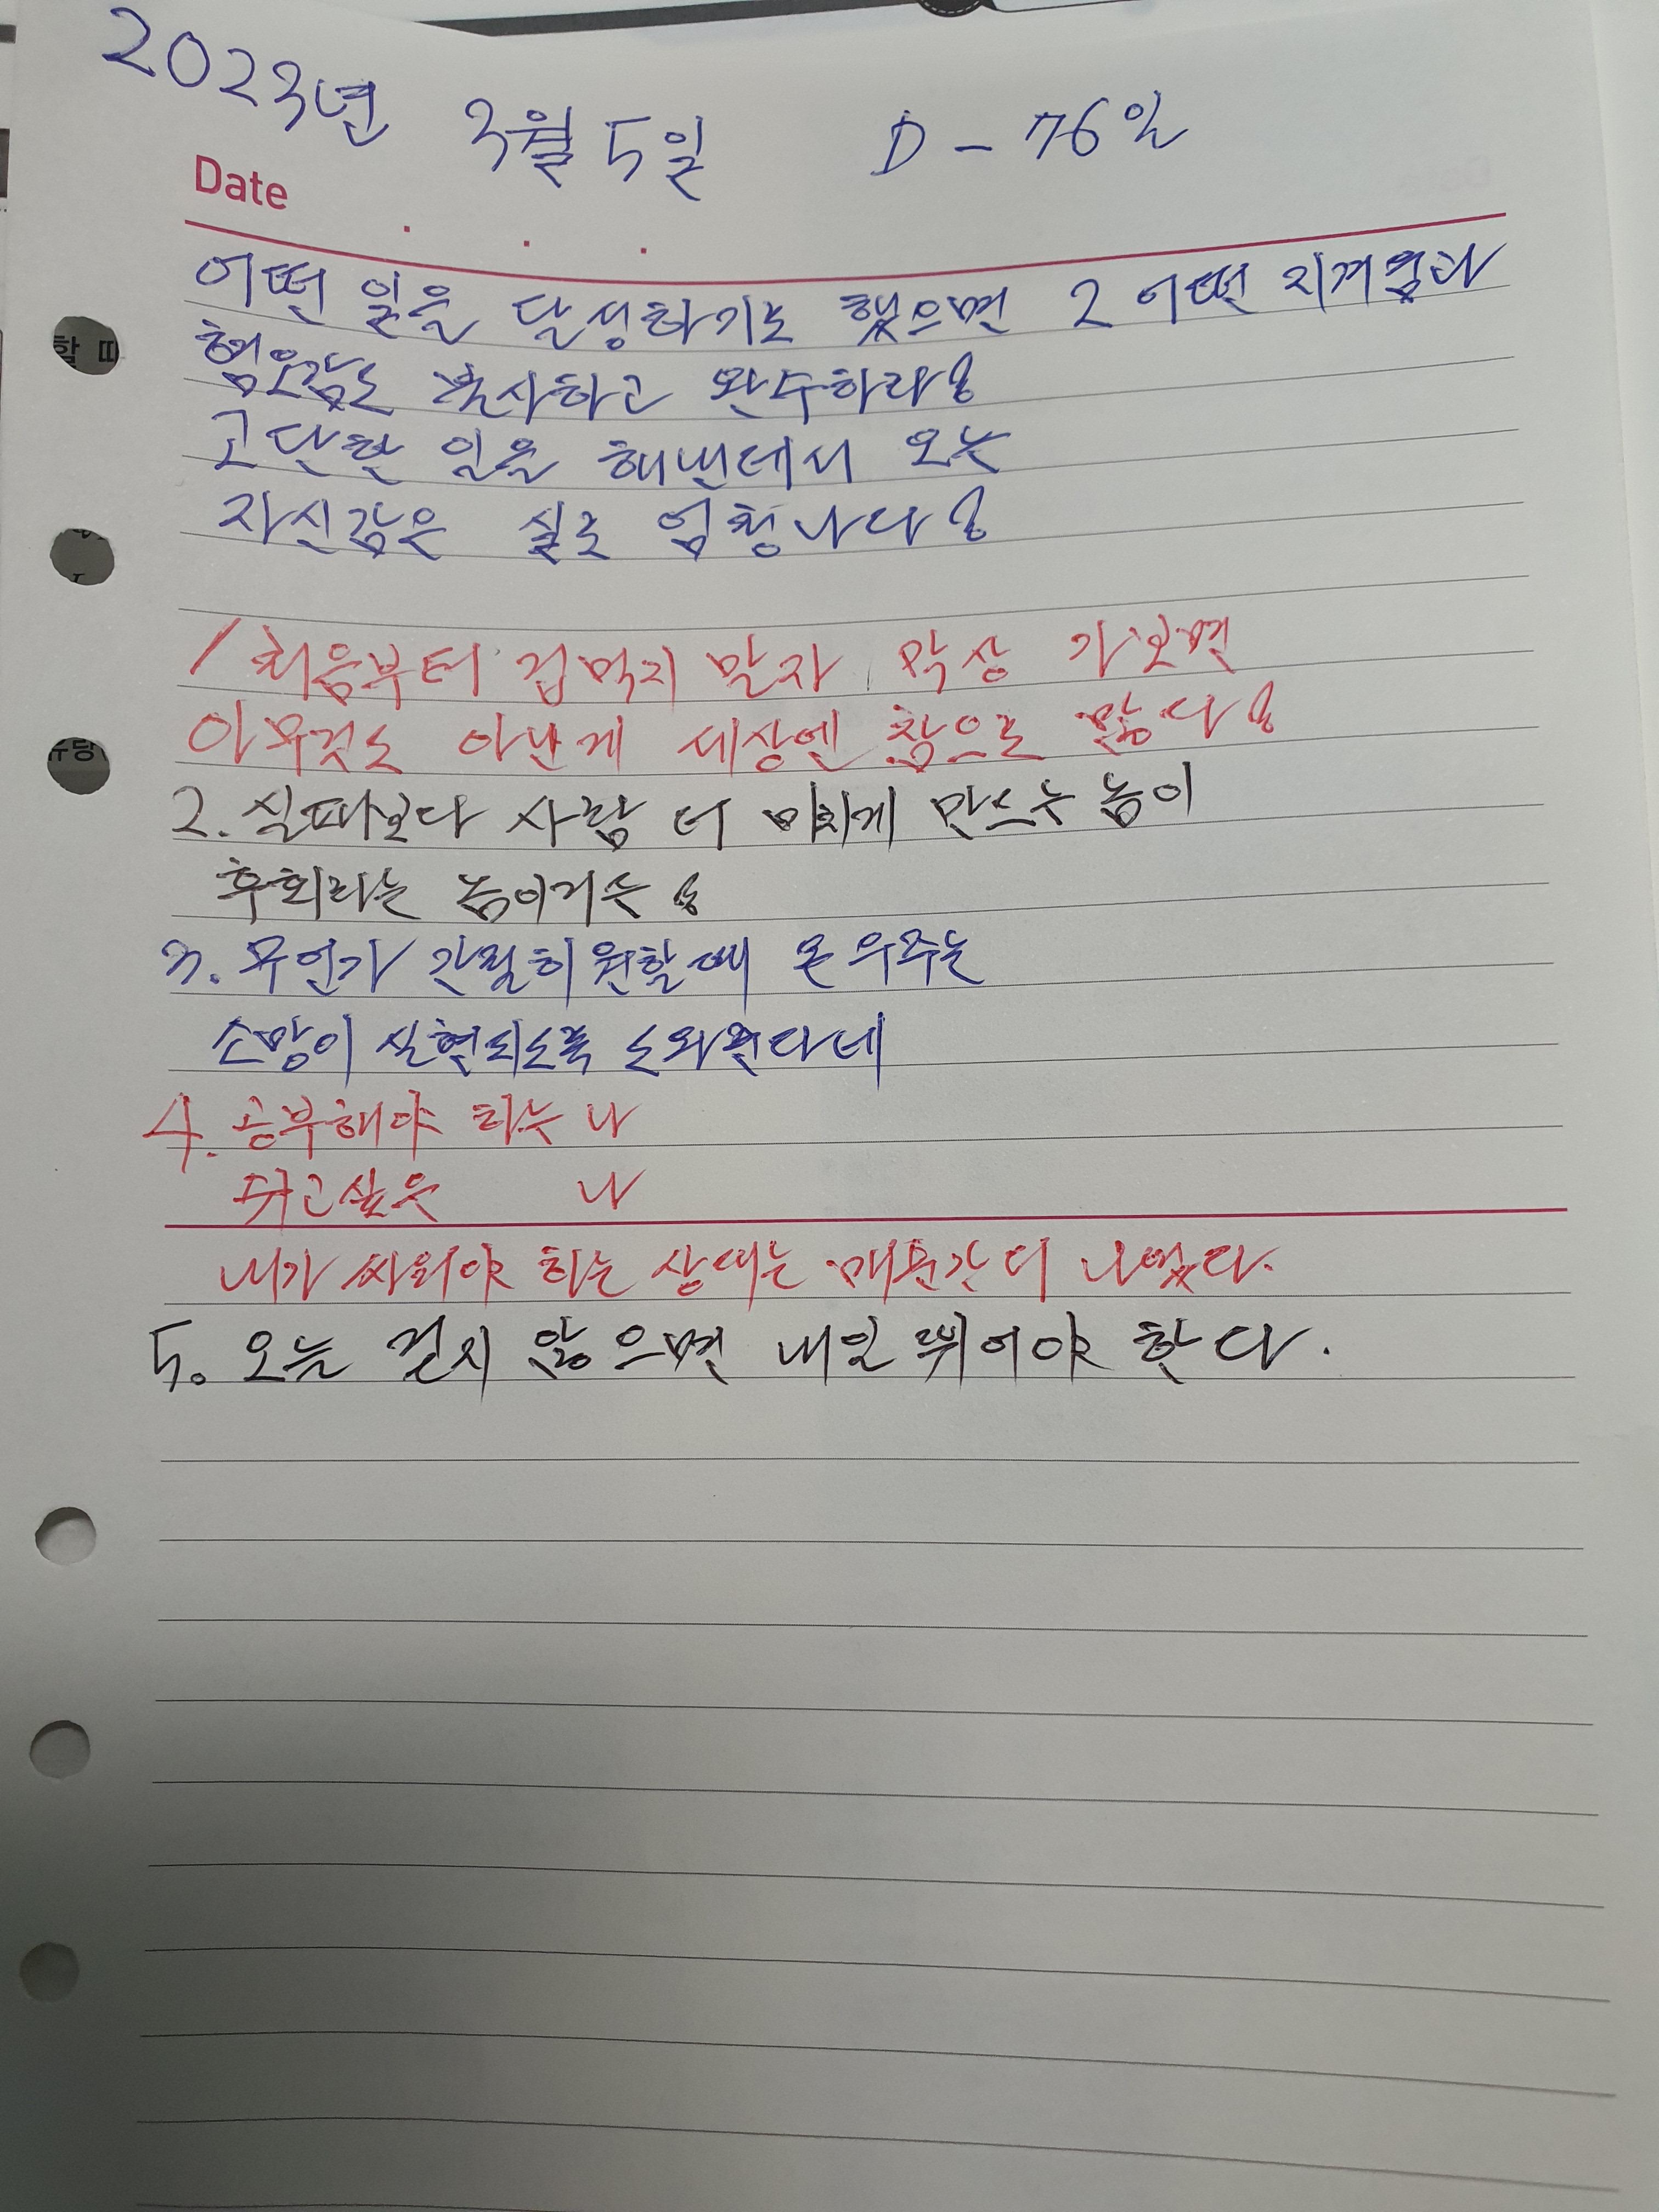 2023년 3월 5일 D-76일
Date
어떤 일을 달성하기로 했으면 그 어떤 지겨움과
혐오감도 불사하고 완수하라!
고단한 일을 해낸데서 오는
자신감은 실로 엄청나다!
1 처음부터 겁먹지 말자 막상 가보면
아무것도 아닌게 세상엔 참으로 많다!
2. 실패보다 사람 더 미치게 만드는 놈이
후회라는 놈이거든!
3. 무언가 간절히 원할때 온 우주는
소망이 실현되도록 도와준다네
4. 공부해야 하는 나
쉬고싶은 나
내가 싸워야 하는 상대는 매순간 더 나였다.
5. 오늘 걷지 않으면 내일 뛰어야 한다.
할 때